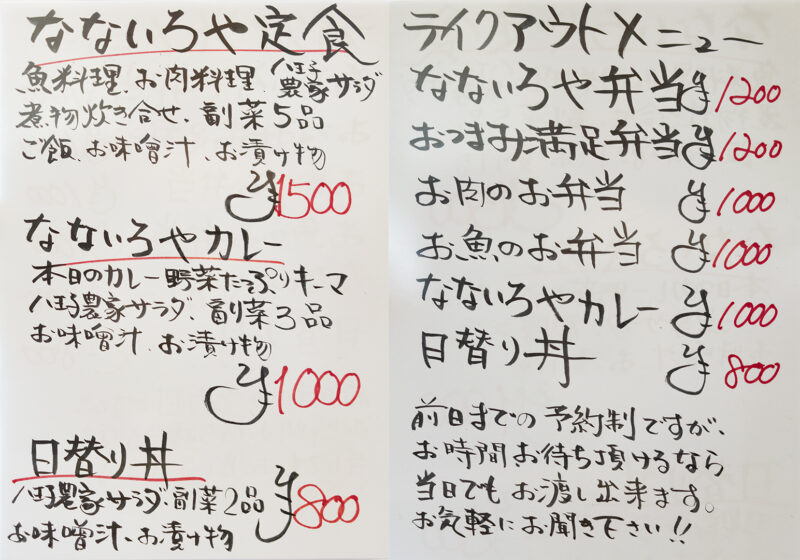 なないろや定食
魚料理、お肉料理、八王子農家サラダ
煮物炊き合せ、副菜5品
ご飯、お味噌汁、お漬け物
¥1500
なないろやカレー
本日のカレー野菜たっぷりキーマ
八王子農家サラダ、副菜3品
お味噌汁、お漬け物
¥1000
日替り丼
八王子農家サラダ、副菜2品
お味噌汁、お漬け物
¥800
テイクアウトメニュー
なないろや弁当 ¥1200
おつまみ満足弁当 ¥1200
お肉のお弁当 ¥1000
お魚のお弁当 ¥1000
なないろやカレー ¥1000
日替り丼 ¥800
前日までの予約制ですが、
お時間お待ち頂けるなら
当日でもお渡し出来ます。
お気軽にお聞き下さい!!